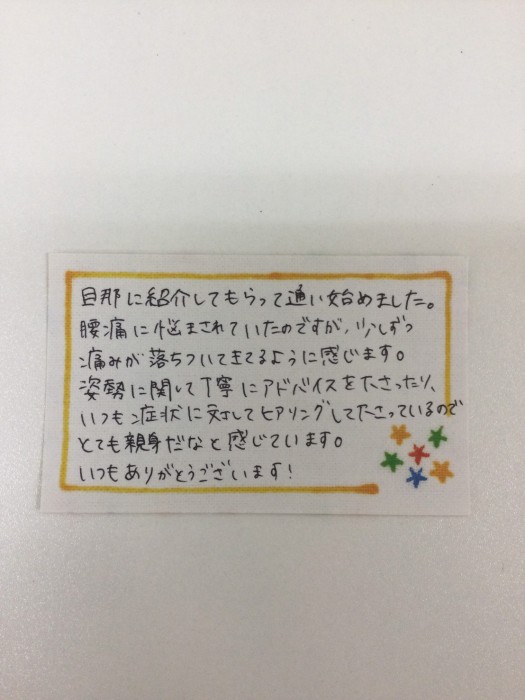 旦那に紹介してもらって通い始めました。
腰痛に悩まされていたのですが、少しずつ
痛みが落ちついてきてるように感じます。
姿勢に関して丁寧にアドバイスを下さったり、
いつも症状に対してヒアリングして下さっているので
とても親身だなと感じています。
いつもありがとうございます!